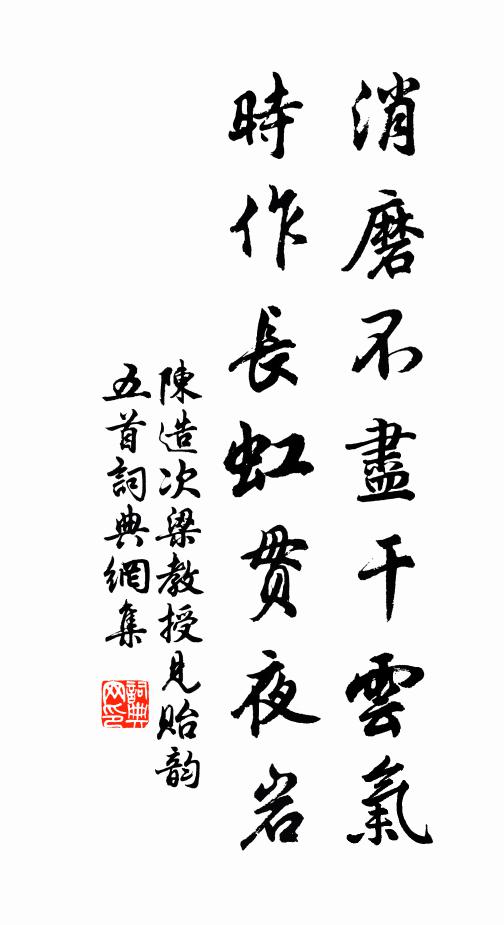 消磨不盡干雲氣
時作長虹貫夜岩
陳造次梁教授見貽韵
五首詞典網集
詞典網印